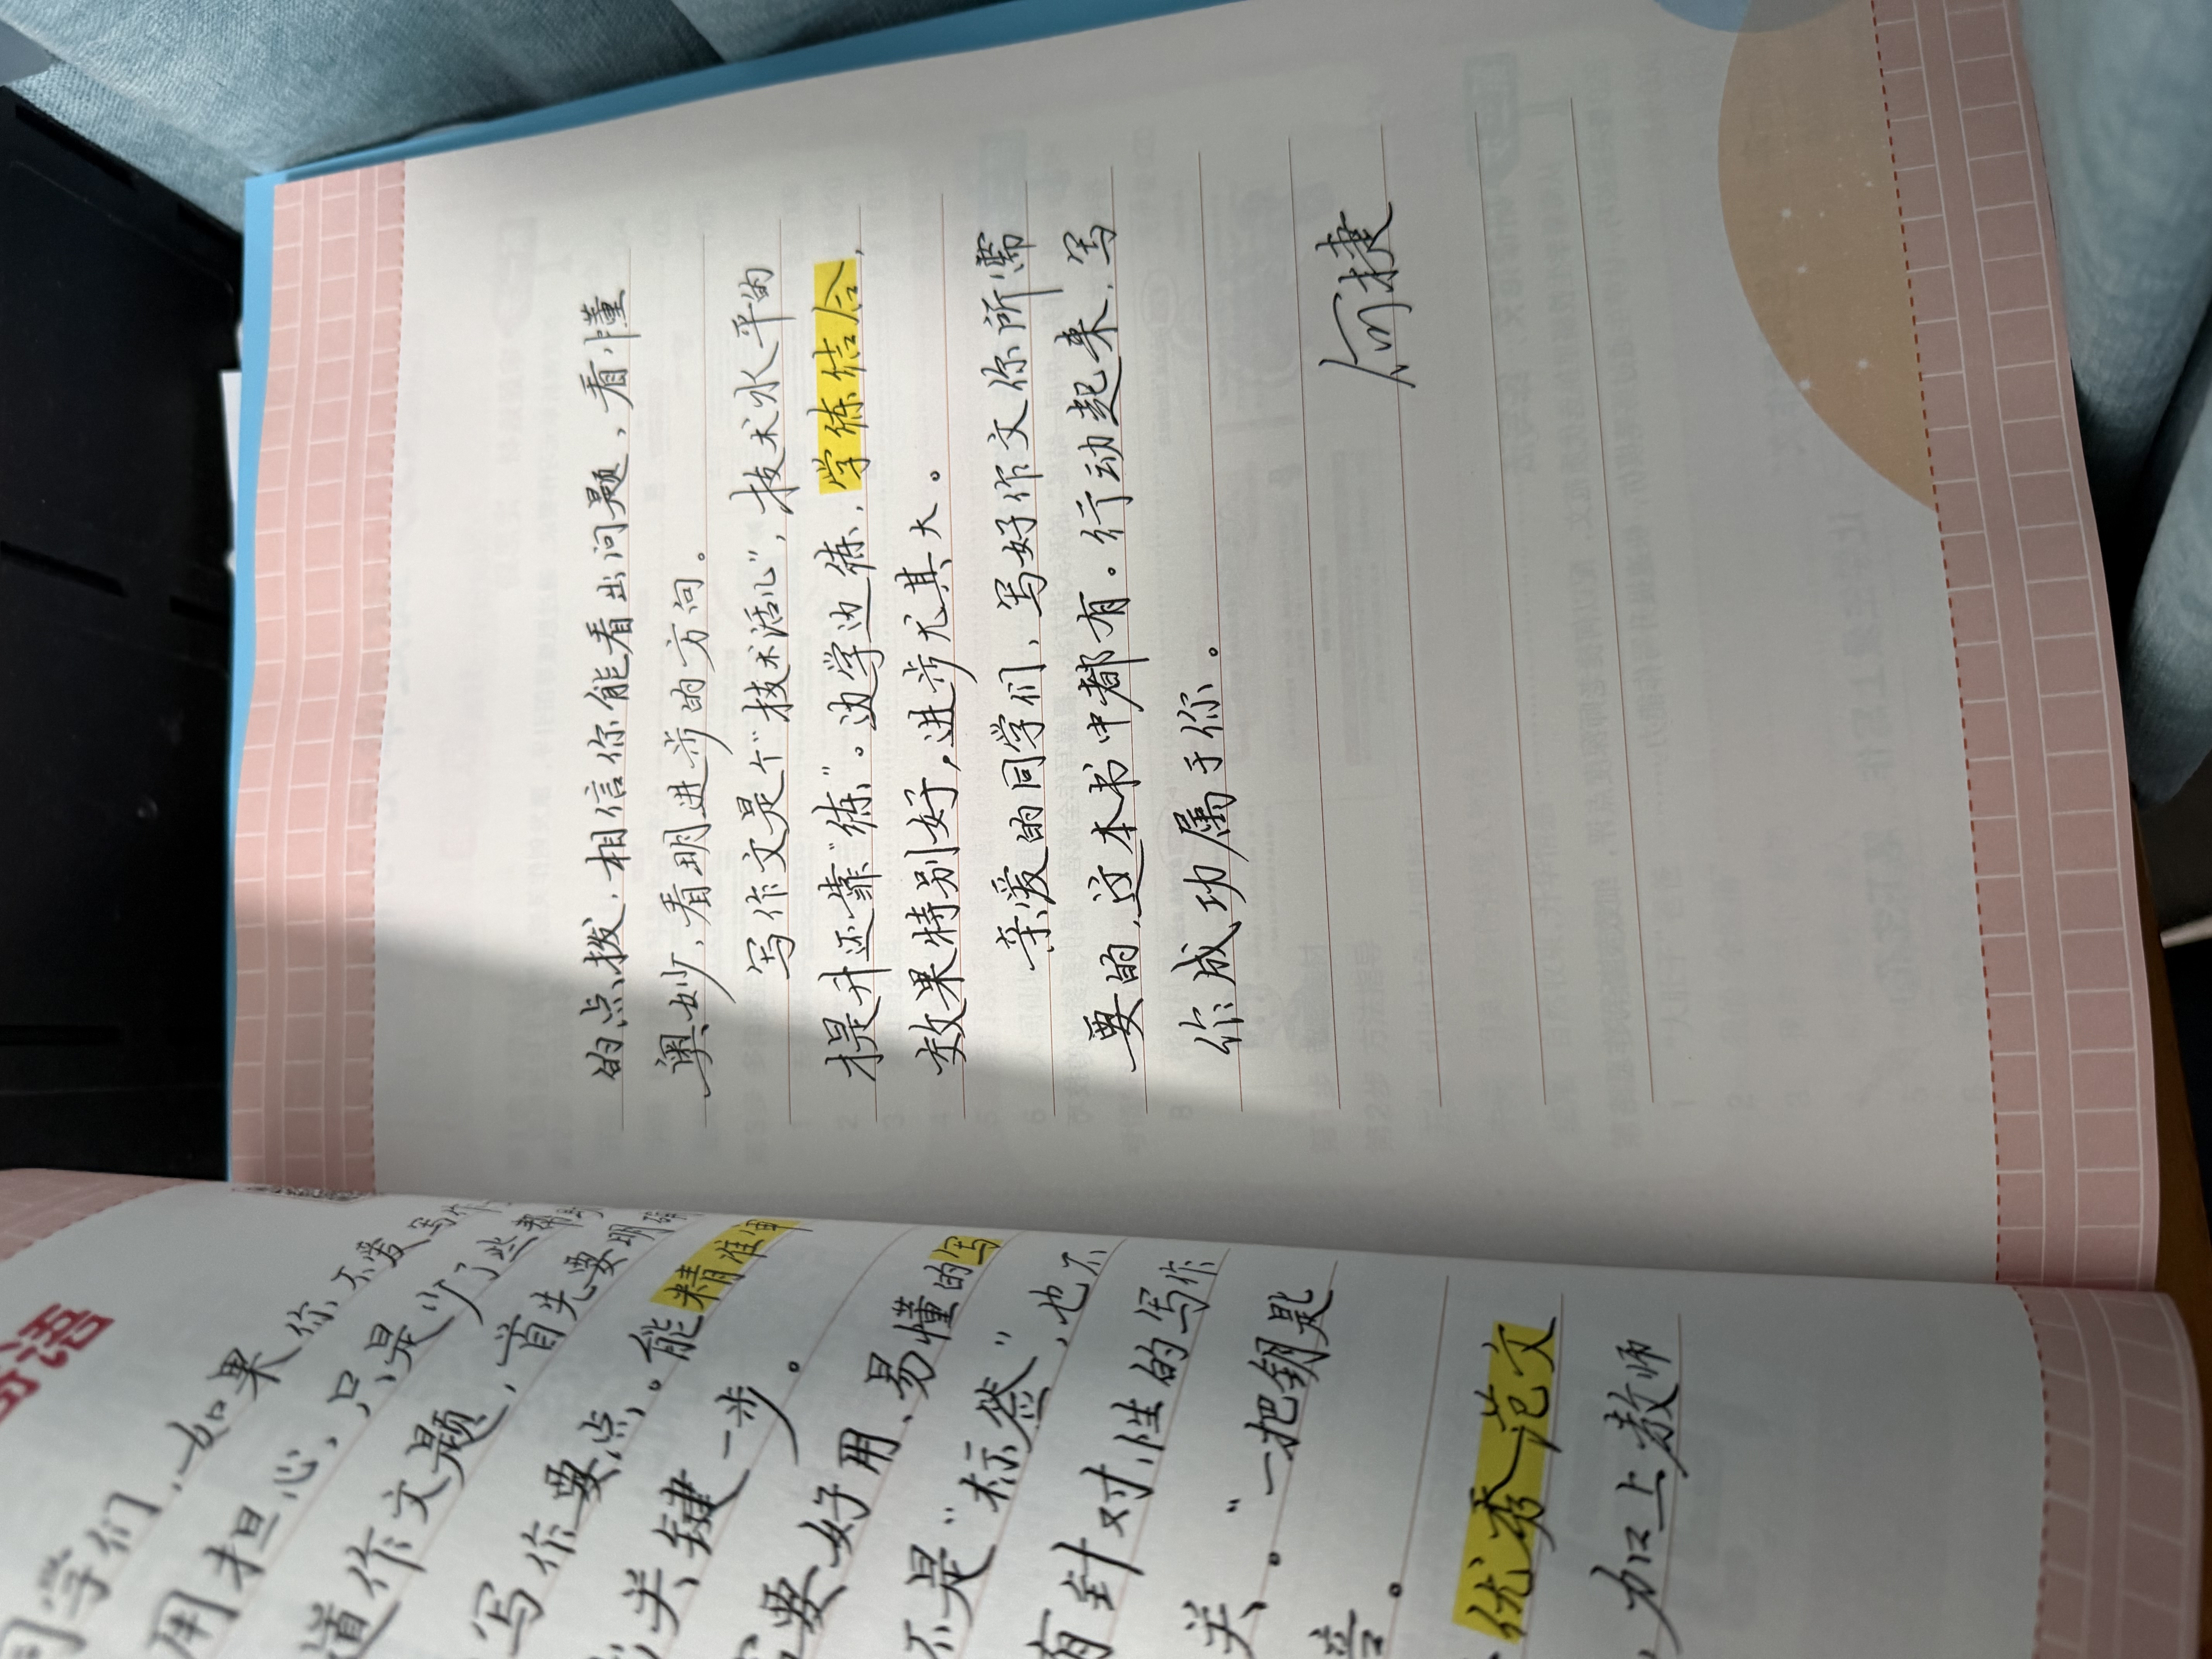 寄语
同学们，如果你不爱写作
用担心，只是少了些帮
道作文题，首先要明确
写作要点。能精准审
关键一步。
要好用、易懂的写
不是“标签”，也不
有针对性的写作
关。“一把钥匙
优秀范文
，加上教师
的点拨，相信你能看出问题，看懂
奥妙，看明进步的方向。
写作文是个“技术活儿”，技术水平的
提升还靠“练”。边学边练，学练结合，
效果特别好，进步尤其大。
亲爱的同学们，写好作文你所需
要的，这本书中都有。行动起来，写
作成功属于你。
何捷